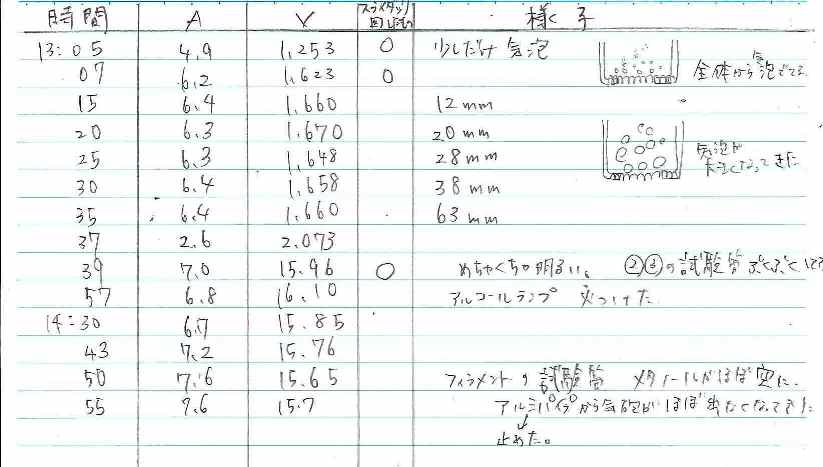 時間 A V スライダック回した 様子
13:05 4.9 1.253 ○ 少しだけ気泡 全体から気泡でてる
07 6.2 1.623 ○
15 6.4 1.660 12mm
20 6.3 1.670 20mm
25 6.3 1.648 28mm 気泡が大きくなってきた
30 6.4 1.658 38mm
35 6.4 1.660 63mm
37 2.6 2.073
39 7.0 15.96 ○ めちゃくちゃ明るい。 ②③の試験管ぶくぶくしてる
57 6.8 16.10 アルコールランプ 火つけた
14:30 6.7 15.85
43 7.2 15.76
50 7.6 15.65 フィラメントの試験管 メタノールがほぼ空に.
55 7.6 15.7 アルミパイプから気泡がほぼ出なくなってきた
↓
止めた。